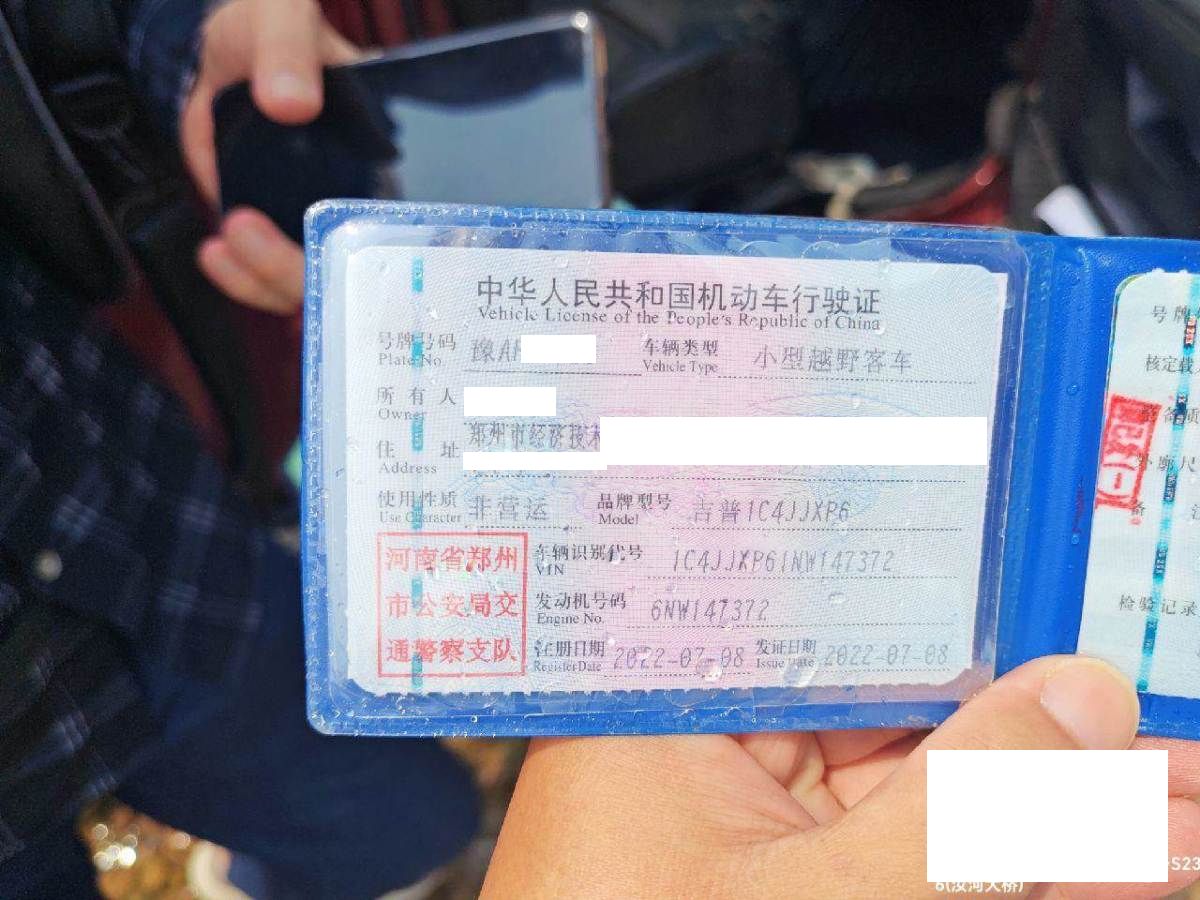 中华人民共和国机动车行驶证
Vehicle License of the People's Republic of China
号牌号码 豫A 车辆类型 小型越野客车
Plate No. Vehicle Type
所有人
Owner
住址 郑州市经济技术
Address
使用性质 非营运 品牌型号 吉普1C4JJXP6
Use Character Model
车辆识别代号 1C4JJXP61NW147372
VIN
发动机号码 6NW147372
Engine No.
注册日期 2022-07-08 发证日期 2022-07-08
Register Date Issue Date
河南省郑州
市公安局交
通警察支队
号牌
核定载
外廓尺
检验记录
S23
6(汝河大桥)